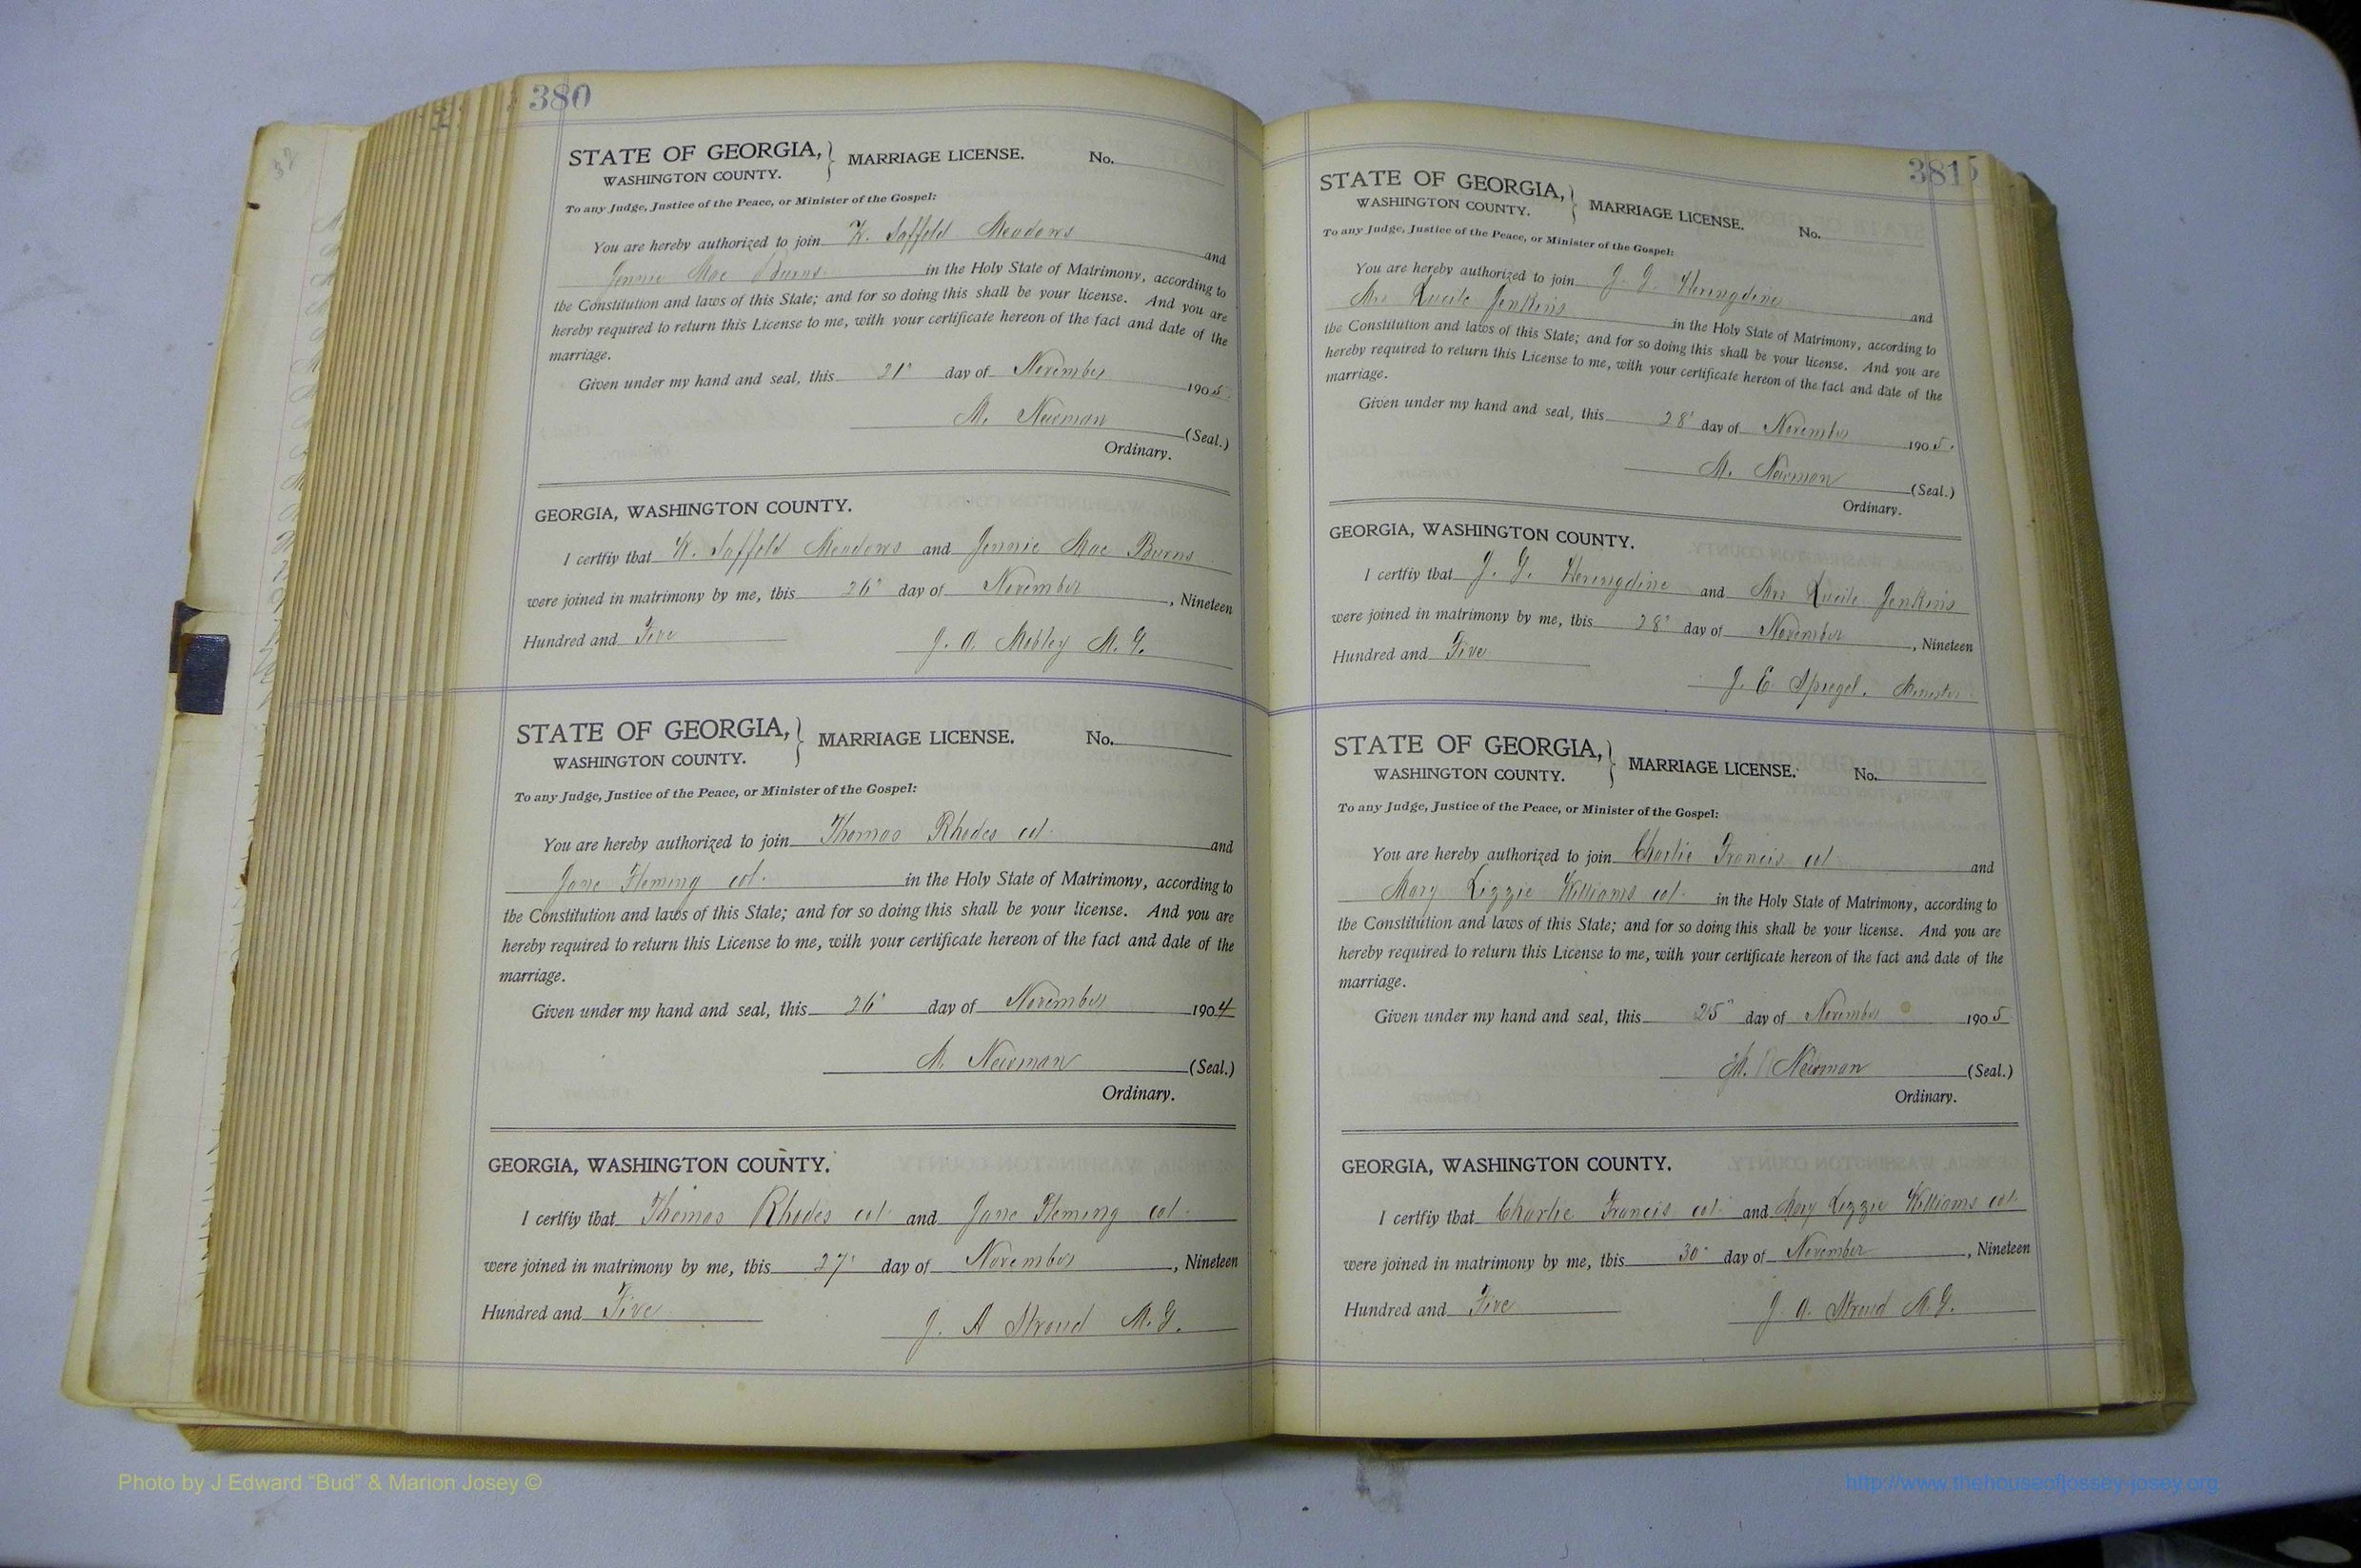 380
STATE OF GEORGIA, MARRIAGE LICENSE. No.
WASHINGTON COUNTY.
To any Judge, Justice of the Peace, or Minister of the Gospel:
You are hereby authorized to join W. Saffold Meadows and
Jennie Mae Burns in the Holy State of Matrimony, according to
the Constitution and laws of this State; and for so doing this shall be your license. And you are
hereby required to return this License to me, with your certificate hereon of the fact and date of the
marriage.
Given under my hand and seal, this 21" day of November 1905.
M. Newman (Seal.)
Ordinary.
GEORGIA, WASHINGTON COUNTY.
I certfiy that W. Saffold Meadows and Jennie Mae Burns
were joined in matrimony by me, this 26" day of November, Nineteen
Hundred and Five J. A. Mobley M. G.
STATE OF GEORGIA, MARRIAGE LICENSE. No.
WASHINGTON COUNTY.
To any Judge, Justice of the Peace, or Minister of the Gospel:
You are hereby authorized to join Thomas Rhodes col. and
Jane Fleming col. in the Holy State of Matrimony, according to
the Constitution and laws of this State; and for so doing this shall be your license. And you are
hereby required to return this License to me, with your certificate hereon of the fact and date of the
marriage.
Given under my hand and seal, this 26" day of November 1904
M. Newman (Seal.)
Ordinary.
GEORGIA, WASHINGTON COUNTY.
I certfiy that Thomas Rhodes col and Jane Fleming col.
were joined in matrimony by me, this 27" day of November, Nineteen
Hundred and Five J. A Stroud M. G.
381
STATE OF GEORGIA, MARRIAGE LICENSE. No.
WASHINGTON COUNTY.
To any Judge, Justice of the Peace, or Minister of the Gospel:
You are hereby authorized to join J. G. Heringdine and
Mrs Lucile Jenkins in the Holy State of Matrimony, according to
the Constitution and laws of this State; and for so doing this shall be your license. And you are
hereby required to return this License to me, with your certificate hereon of the fact and date of the
marriage.
Given under my hand and seal, this 28" day of November 1905.
M. Newman (Seal.)
Ordinary.
GEORGIA, WASHINGTON COUNTY.
I certfiy that J. G. Heringdine and Mrs Lucile Jenkins
were joined in matrimony by me, this 28" day of November, Nineteen
Hundred and Five J. E. Spiegel. Minister
STATE OF GEORGIA, MARRIAGE LICENSE. No.
WASHINGTON COUNTY.
To any Judge, Justice of the Peace, or Minister of the Gospel:
You are hereby authorized to join Charlie Francis col and
Mary Lizzie Williams col. in the Holy State of Matrimony, according to
the Constitution and laws of this State; and for so doing this shall be your license. And you are
hereby required to return this License to me, with your certificate hereon of the fact and date of the
marriage.
Given under my hand and seal, this 25" day of November 1905
M. Newman (Seal.)
Ordinary.
GEORGIA, WASHINGTON COUNTY.
I certfiy that Charlie Francis col and Mary Lizzie Williams col.
were joined in matrimony by me, this 30" day of November, Nineteen
Hundred and Five J. A. Stroud M. G.
Photo by J Edward "Bud" & Marion Josey ©
http://www.thehouseofjossey-josey.org